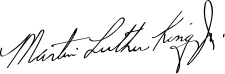 Martin Luther King Jr.